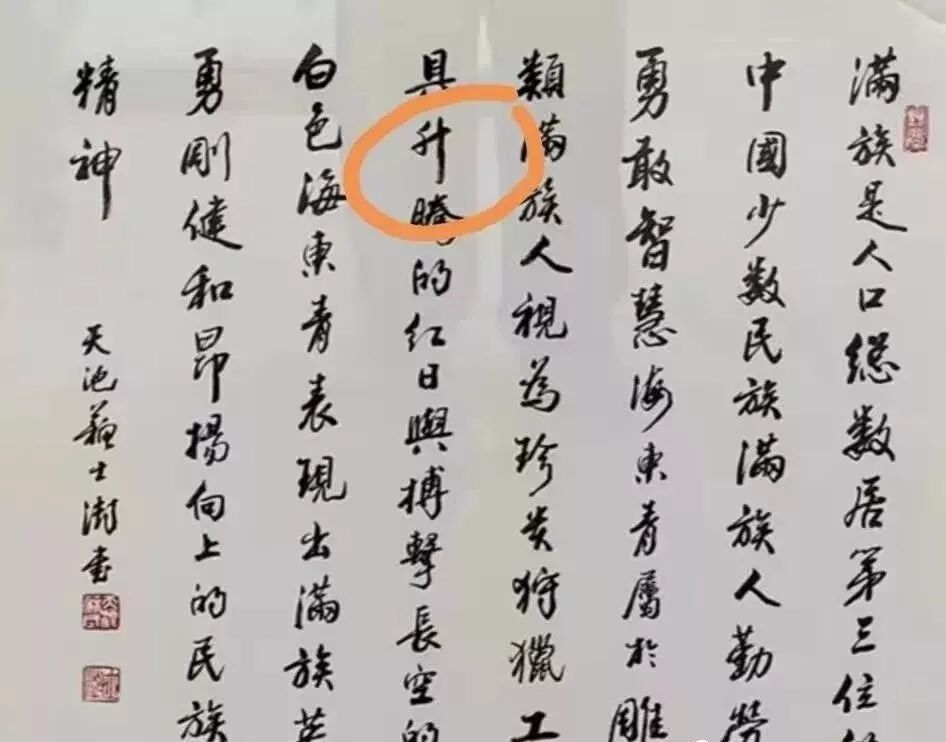 滿族是人口總數居第三位
中國少數民族滿族人勤勞
勇敢智慧海東青屬於雕
類滿族人視為珍貴狩獵工
具升騰的紅日與搏擊長空的
白色海東青表現出滿族英
勇剛健和昂揚向上的民族
精神
天池蘇士澍書